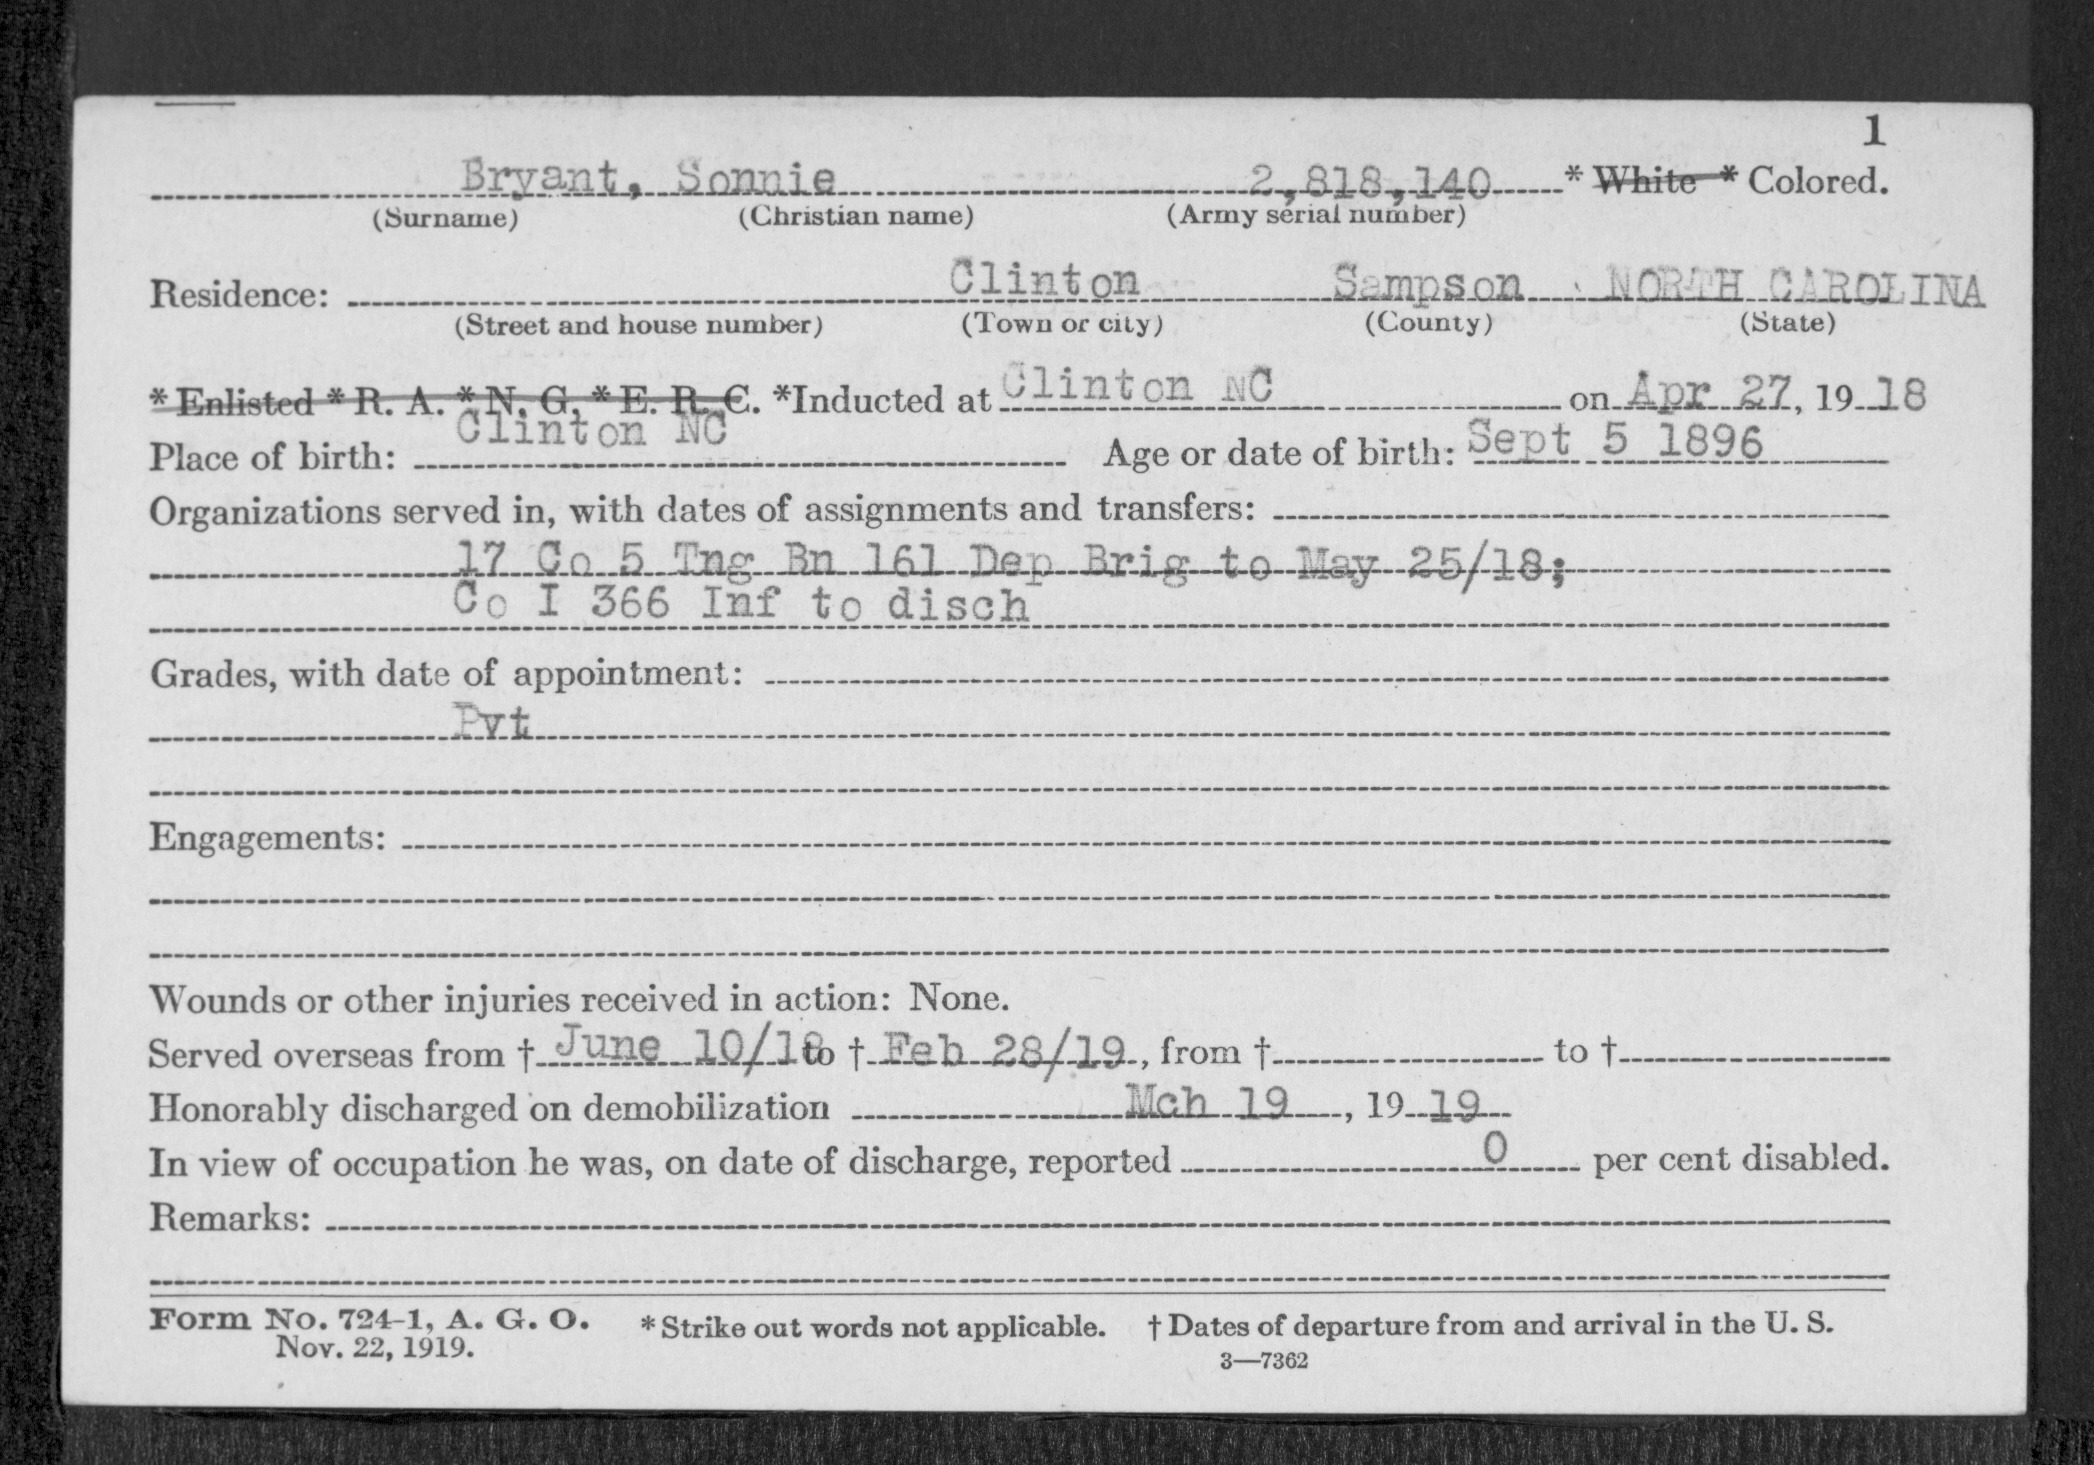 1
Bryant, Sonnie 2,818,140 * White * Colored.
(Surname) (Christian name) (Army serial number)
Residence: Clinton Sampson NORTH CAROLINA
(Street and house number) (Town or city) (County) (State)
* Enlisted * R. A. * N. G. * E. R. C. *Inducted at Clinton NC on Apr 27, 19 18
Place of birth: Clinton NC Age or date of birth: Sept 5 1896
Organizations served in, with dates of assignments and transfers:
17 Co 5 Tng Bn 161 Dep Brig to May 25/18;
Co I 366 Inf to disch
Grades, with date of appointment:
Pvt
Engagements:
Wounds or other injuries received in action: None.
Served overseas from † June 10/18 to † Feb 28/19, from † to †
Honorably discharged on demobilization Mch 19, 19 19
In view of occupation he was, on date of discharge, reported 0 per cent disabled.
Remarks:
Form No. 724-1, A. G. O. * Strike out words not applicable. † Dates of departure from and arrival in the U. S.
Nov. 22, 1919. 3—7362